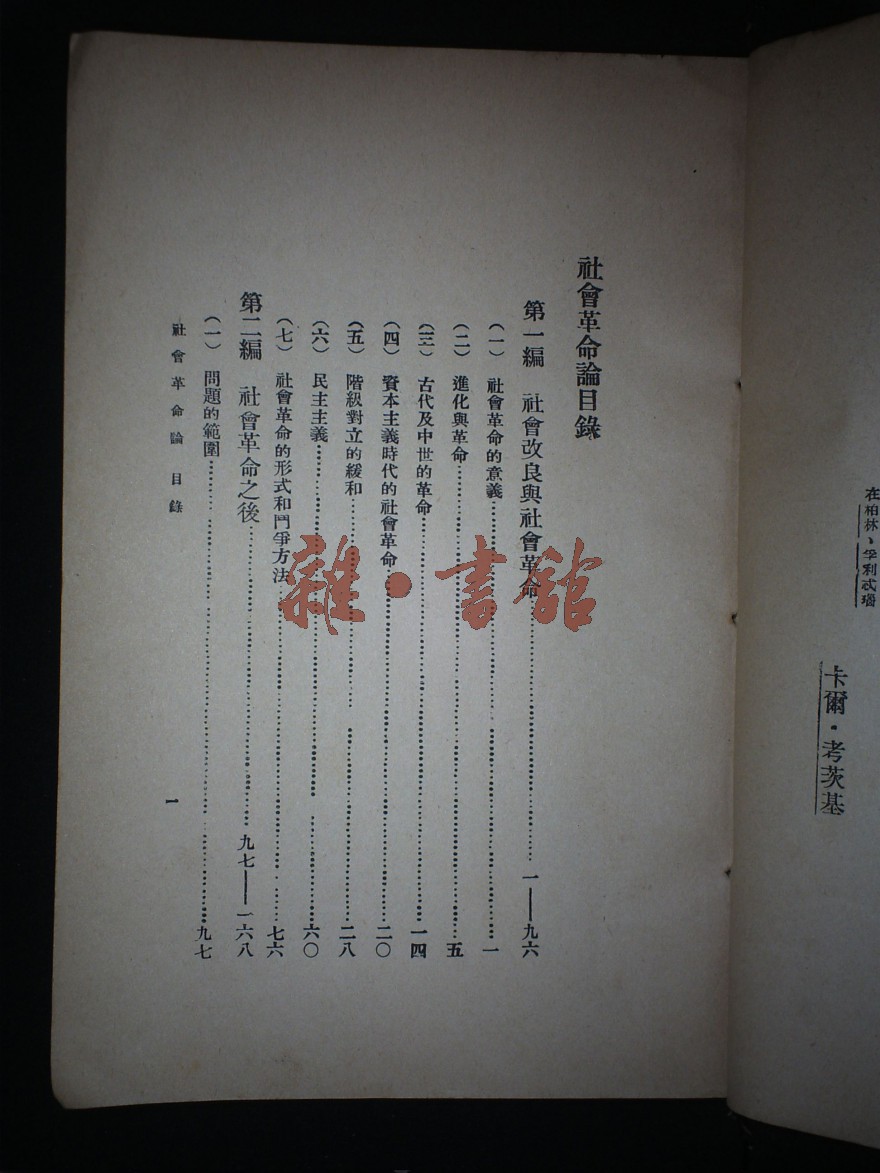 在柏林、孚利忒瑙
卡爾・考茨基
社會革命論目錄
第一編 社會改良與社會革命……一——九六
(一) 社會革命的意義……一
(二) 進化與革命……五
(三) 古代及中世的革命……一四
(四) 資本主義時代的社會革命……二〇
(五) 階級對立的緩和……二八
(六) 民主主義……六〇
(七) 社會革命的形式和鬥爭方法……七六
第二編 社會革命之後……九七——一六八
(一) 問題的範圍……九七
社會革命論 目錄
一
雜・書館